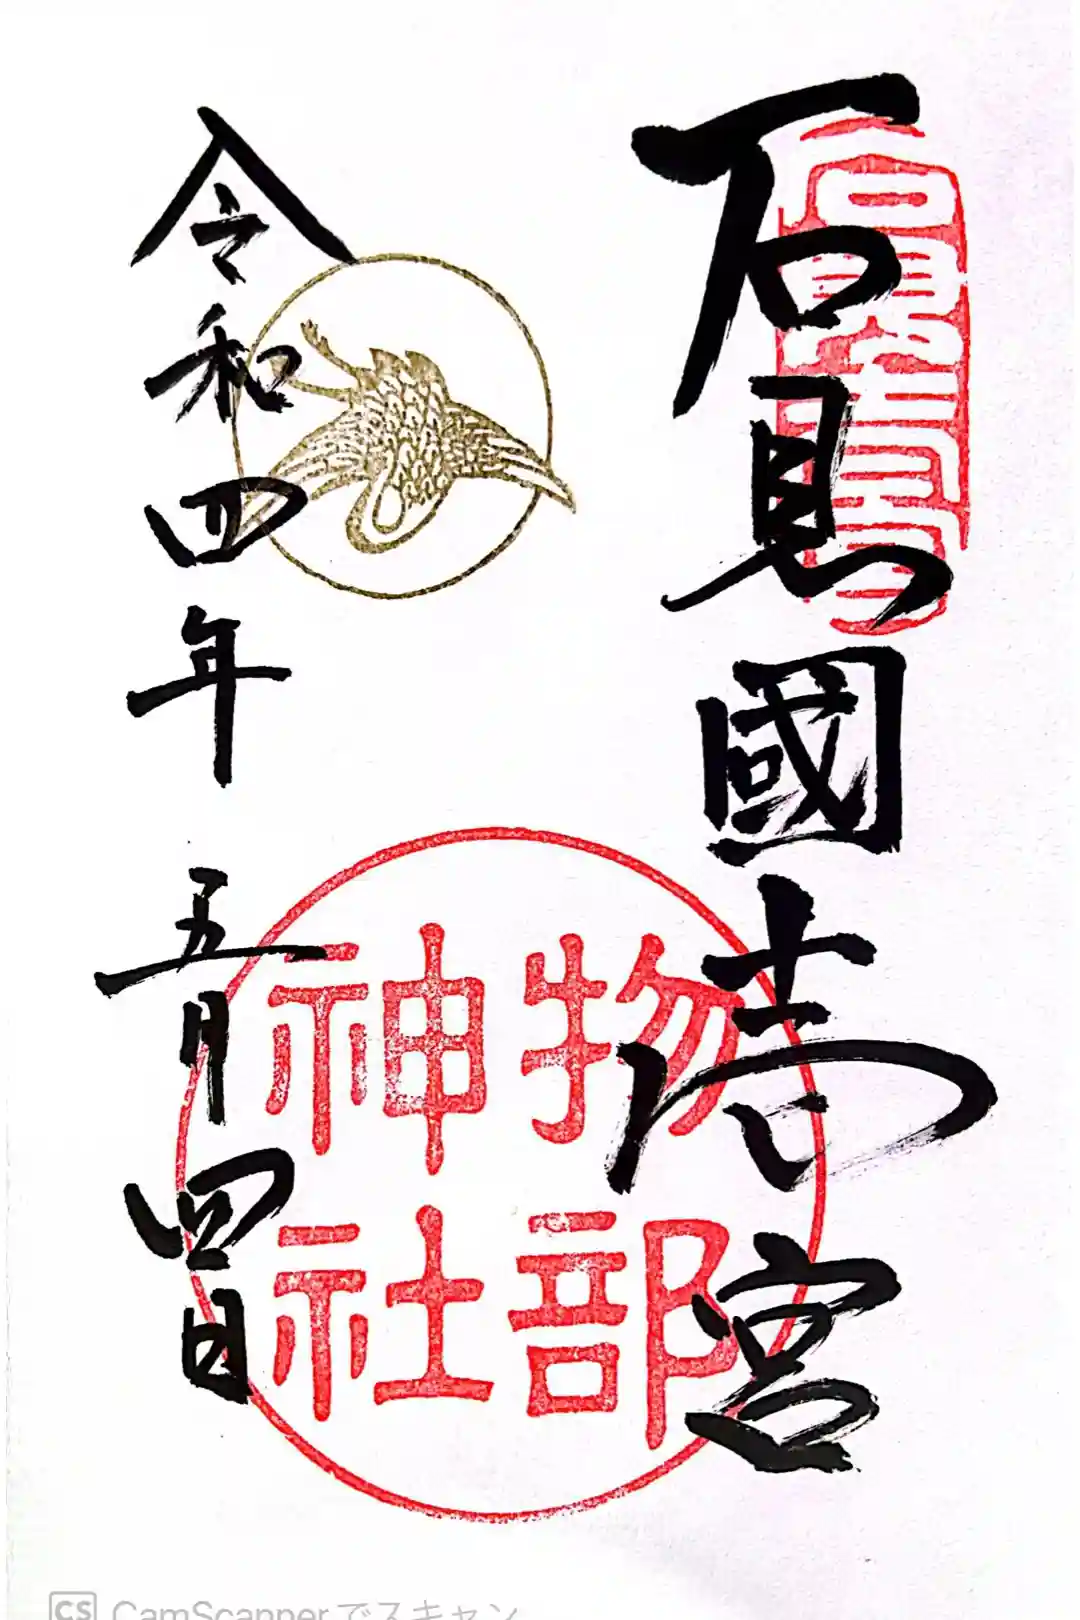 石見國壱宮
物部
神社
令和四年五月四日
CS CamScannerでスキャン